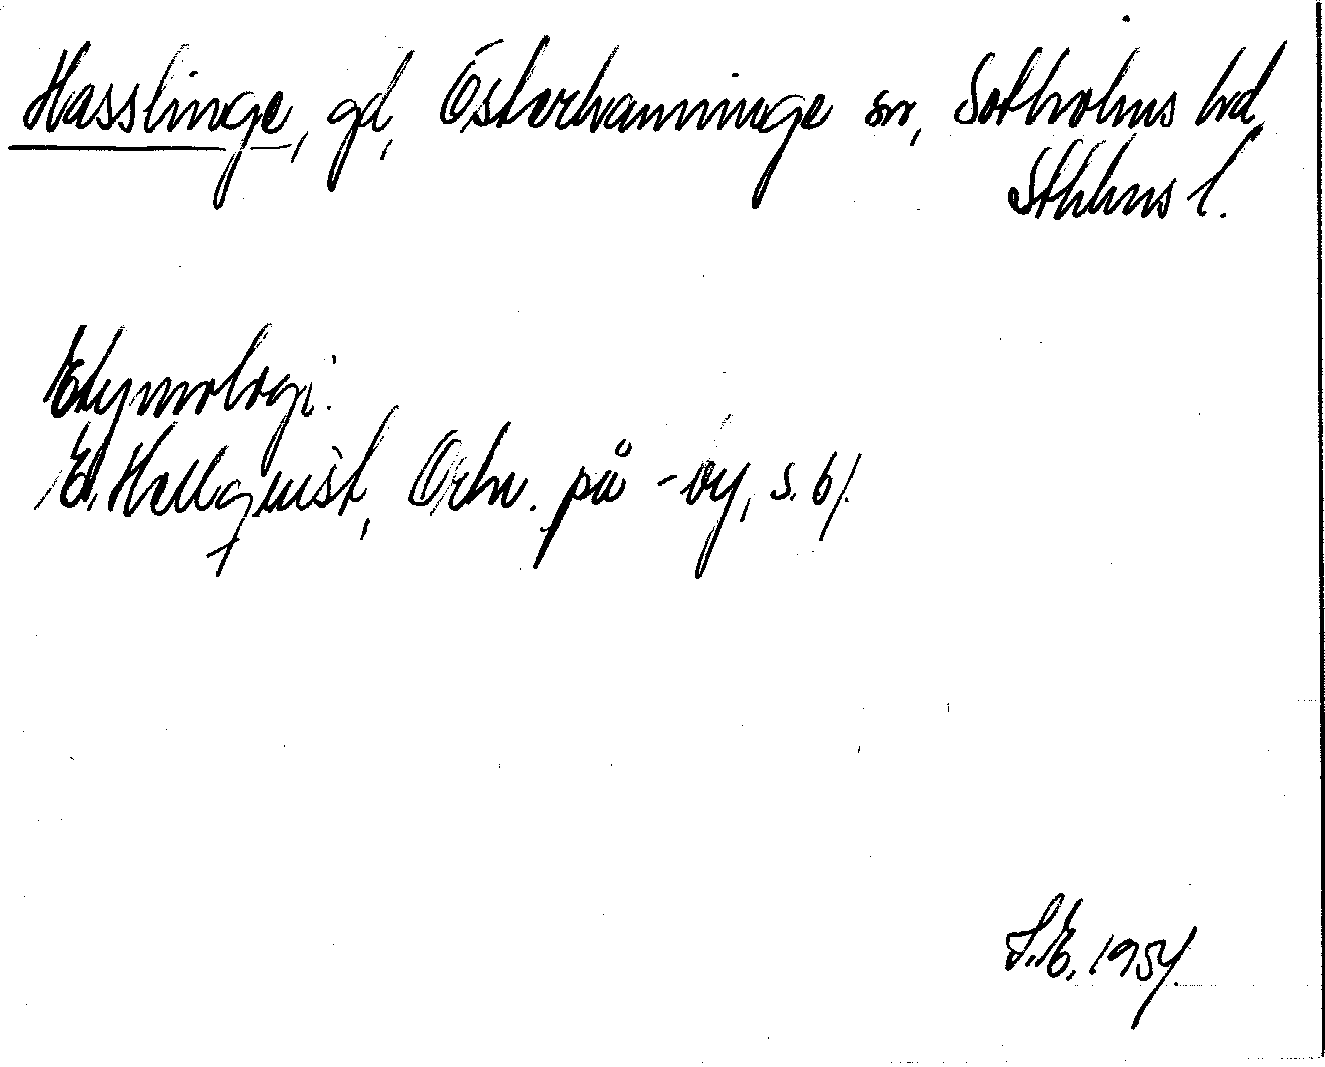 Hasslinge, gd, Österhanninge sn, Sotholms hd,
Sthlms l.
Etymologi.
E. Hellquist, Ortn. på -by, s. 6
S.E. 195